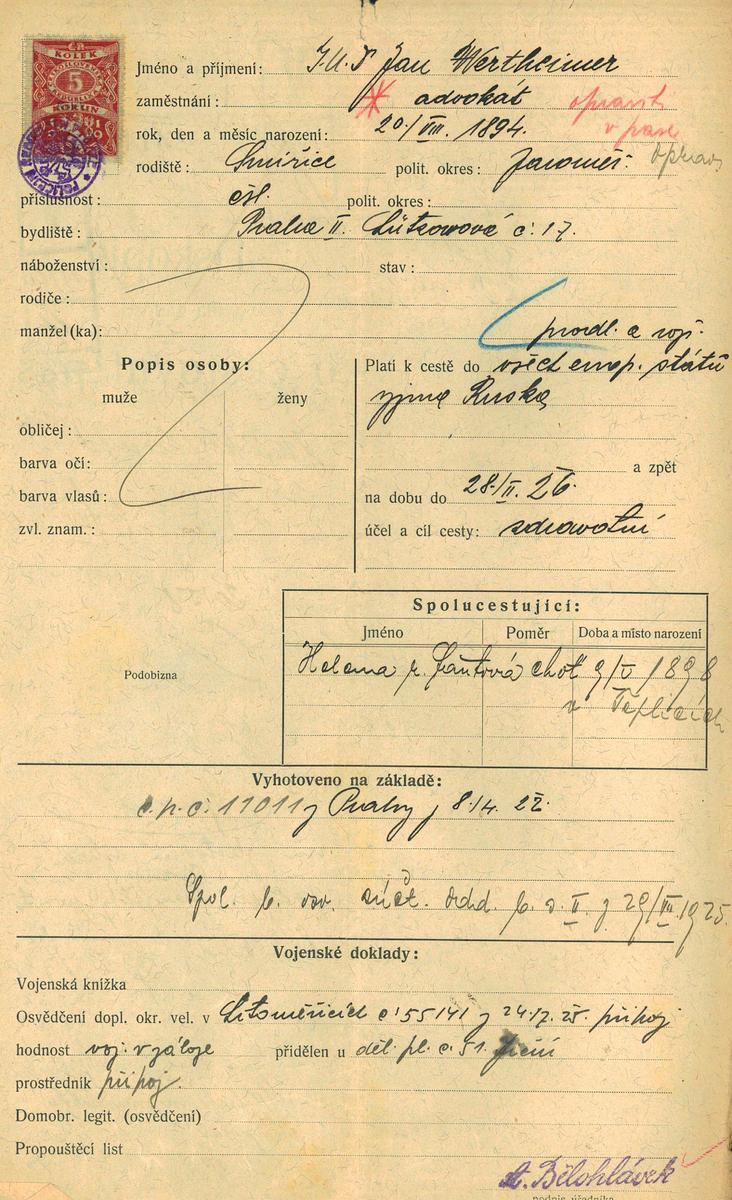 KOLEK
5
KORUN
Jméno a příjmení: J.U.D Jan Wertheimer
zaměstnání: advokát
v pase
rok, den a měsíc narození: 20/VIII. 1894.
rodiště: Smiřice polit. okres: Jaroměř.
příslušnost: čsl. polit. okres:
bydliště: Praha II. Lützowova č. 17.
náboženství: stav:
rodiče:
manžel (ka):
prodl. a roz.
Popis osoby:
muže ženy
obličej:
barva očí:
barva vlasů:
zvl. znam.:
Platí k cestě do všech evrop. států
vyjma Ruska
a zpět
na dobu do 28./II. 26.
účel a cíl cesty: zdravotní
Podobizna
Spolucestující:
Jméno Poměr Doba a místo narození
Helena r. choť 9/V 1898
v Teplicích
Vyhotoveno na základě:
c.p.č. 11011 z Prahy z 8./4. 22.
Spol. b. osv. účt. b. z. II z 29/VIII.1925.
Vojenské doklady:
Vojenská knížka
Osvědčení dopl. okr. vel. v Litoměřicích č. 55141 z 24.12.25. připoj
hodnost voj. v záloze přidělen u děl. pl. č. 51. Jičín
prostředník připoj.
Domobr. legit. (osvědčení)
Propouštěcí list
A. Bělohlávek
podpis úředníka